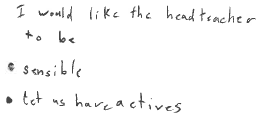 I would like the headteacher
to be
• sensible
• let us have actives